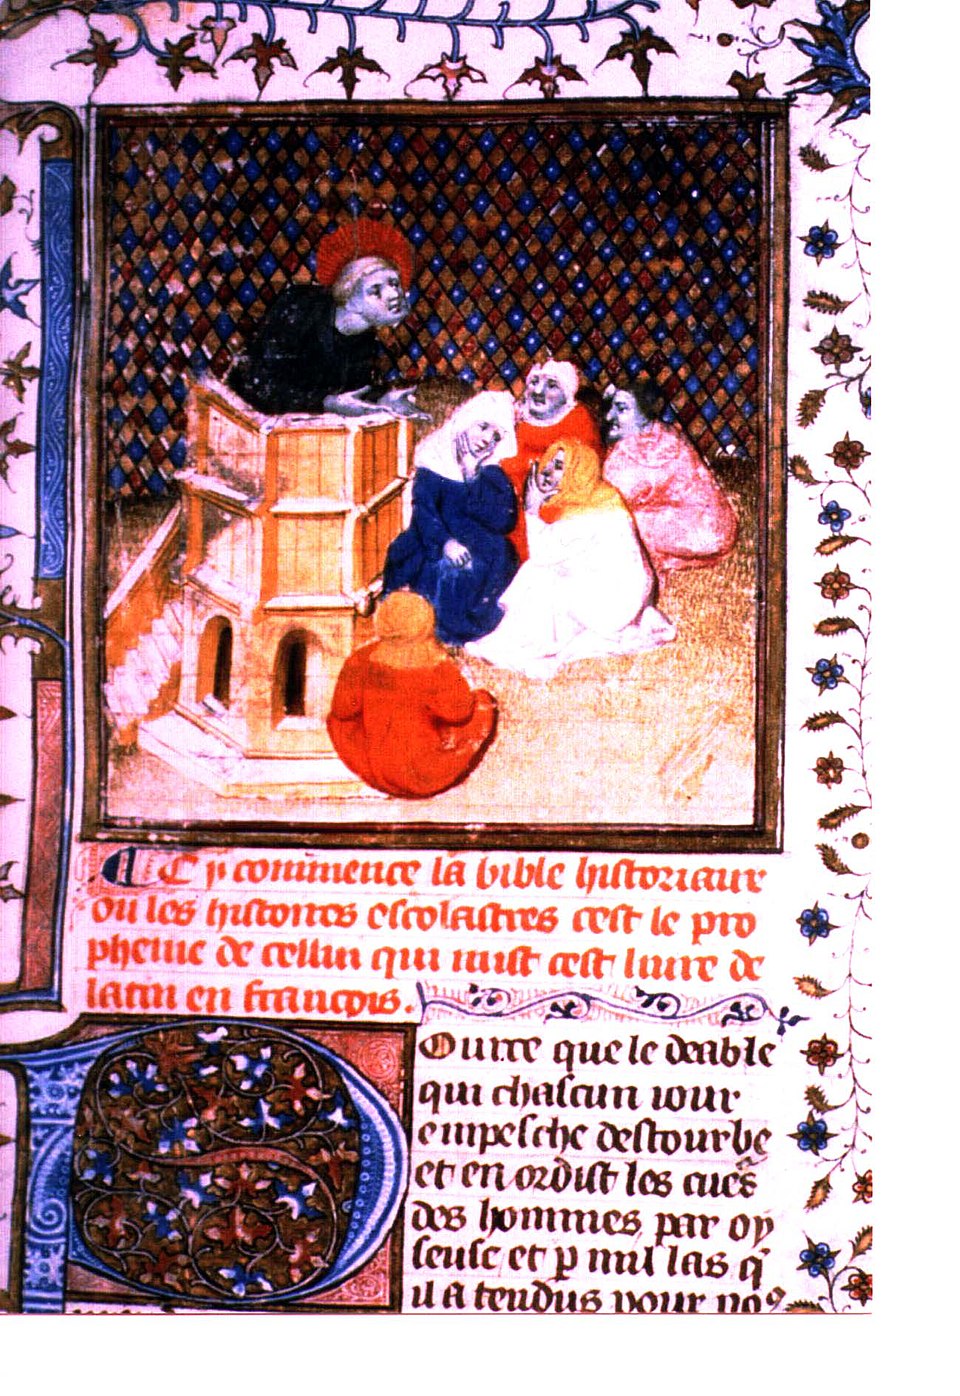 Cy commence la bible historiaux
ou les histoires escolastres cest le pro
heme de cellui qui mist cest liure de
latin en francois.
Pource que le deable
qui chascun iour
empesche destourbe
et en ordist les cuers
des hommes par oy
seuse et p mil las q
il a tendus pour no9